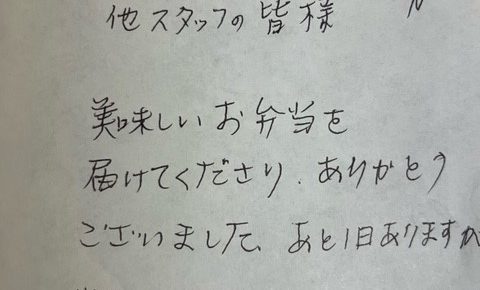 他スタッフの皆様
美味しいお弁当を
届けてくださり、ありがとう
ございました、あと1日ありますが